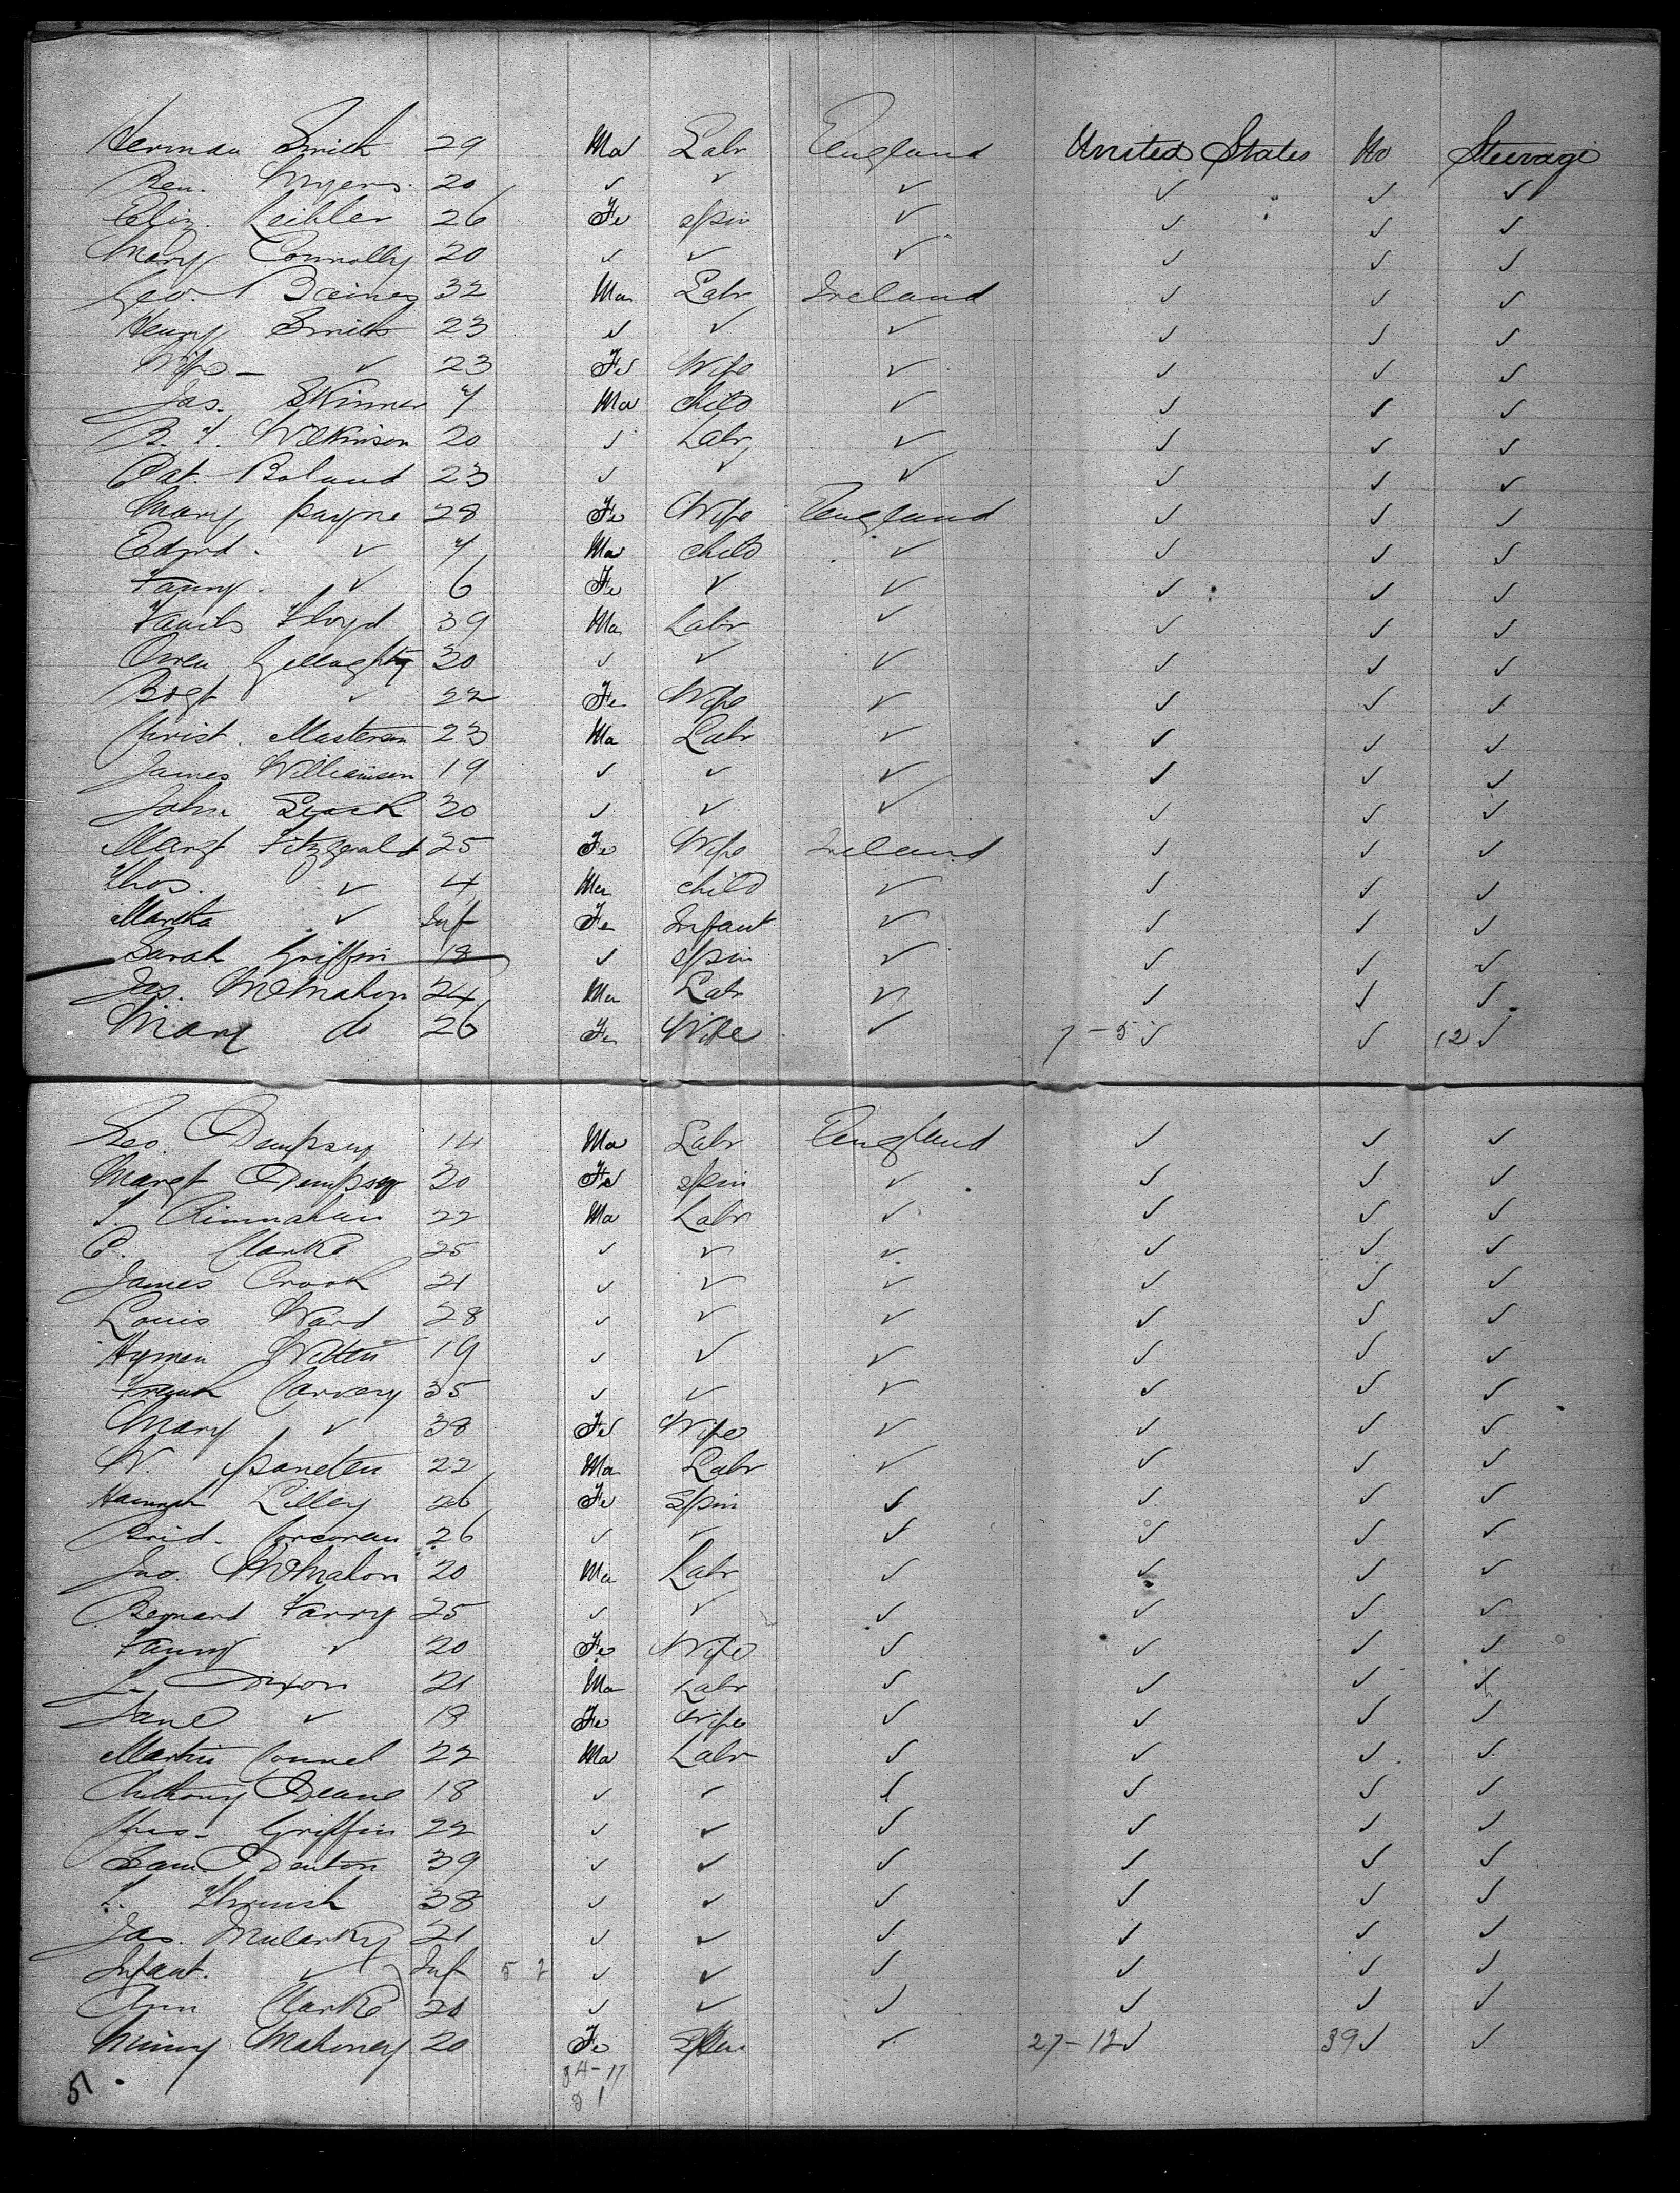 Herman Smith 29 Ma Labr England United States No Steerage
Ben. Myers. 20 ✓ ✓ ✓ ✓ ✓ ✓
Eliz. 26 Fe Spin ✓ ✓ ✓ ✓
Mary Connolly 20 ✓ ✓ ✓ ✓ ✓ ✓
Geo. Baines 32 Ma Labr Ireland ✓ ✓ ✓
Henry Smith 23 ✓ ✓ ✓ ✓ ✓ ✓
Wife — ✓ 23 Fe Wife ✓ ✓ ✓ ✓
Jas. Skinner 7 Ma child ✓ ✓ ✓ ✓
Wilkinson 20 ✓ Labr ✓ ✓ ✓ ✓
Pat. Boland 23 ✓ ✓ ✓ ✓ ✓ ✓
Mary Payne 28 Fe Wife England ✓ ✓ ✓
Edmd. ✓ 7 Ma child ✓ ✓ ✓ ✓
Fanny. ✓ 6 Fe ✓ ✓ ✓ ✓ ✓
Lloyd 39 Ma Labr ✓ ✓ ✓ ✓
Owen 30 ✓ ✓ ✓ ✓ ✓ ✓
Bdgt ✓ 22 Fe Wife ✓ ✓ ✓ ✓
Christ. Masterson 23 Ma Labr ✓ ✓ ✓ ✓
James Williamson 19 ✓ ✓ ✓ ✓ ✓ ✓
John 30 ✓ ✓ ✓ ✓ ✓ ✓
Margt Fitzgerald 25 Fe Wife Ireland ✓ ✓ ✓
Thos. ✓ 4 Ma child ✓ ✓ ✓ ✓
Martha ✓ Inf Fe Infant ✓ ✓ ✓ ✓
Sarah Griffin 18 ✓ Spin ✓ ✓ ✓ ✓
Jas. McMahon 24 Ma Labr ✓ ✓ ✓ ✓
Mary do 26 Fe Wife ✓ 7-5 ✓ ✓ 12 ✓
Geo. Dempsey 14 Ma Labr England ✓ ✓ ✓
Margt Dempsey 20 Fe Spin ✓ ✓ ✓ ✓
22 Ma Labr ✓ ✓ ✓ ✓
P. Clarke 25 ✓ ✓ ✓ ✓ ✓ ✓
James Crook 21 ✓ ✓ ✓ ✓ ✓ ✓
Louis Ward 28 ✓ ✓ ✓ ✓ ✓ ✓
Hymen 19 ✓ ✓ ✓ ✓ ✓ ✓
Frank Carvery 35 ✓ ✓ ✓ ✓ ✓ ✓
Mary ✓ 38 Fe Wife ✓ ✓ ✓ ✓
W. 22 Ma Labr ✓ ✓ ✓ ✓
Hannah Lilley 26 Fe Spin ✓ ✓ ✓ ✓
Brid. Corcoran 26 ✓ ✓ ✓ ✓ ✓ ✓
Jno. McMahon 20 Ma Labr ✓ ✓ ✓ ✓
Bernard Farry 25 ✓ ✓ ✓ ✓ ✓ ✓
Fanny ✓ 20 Fe Wife ✓ ✓ ✓ ✓
Dixon 21 Ma Labr ✓ ✓ ✓ ✓
Jane ✓ 18 Fe Wife ✓ ✓ ✓ ✓
Martin Connel 22 Ma Labr ✓ ✓ ✓ ✓
Anthony Deane 18 ✓ ✓ ✓ ✓ ✓ ✓
Chas. Griffin 22 ✓ ✓ ✓ ✓ ✓ ✓
Sam Denton 39 ✓ ✓ ✓ ✓ ✓ ✓
38 ✓ ✓ ✓ ✓ ✓ ✓
Jas. Mularky 21 ✓ ✓ ✓ ✓ ✓ ✓
Infant. ✓ Inf 5 2 ✓ ✓ ✓ ✓ ✓ ✓
Ann Clarke 20 ✓ ✓ ✓ ✓ ✓ ✓
Minny Mahoney 20 Fe Spin ✓ 27-12 ✓ 39 ✓ ✓
34-17
51